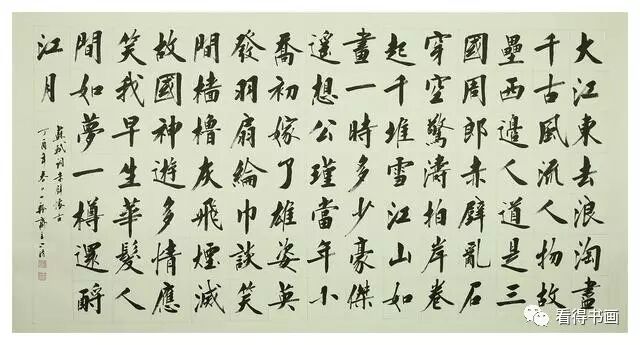 大江東去浪淘盡
千古風流人物故
壘西邊人道是三
國周郎赤壁亂石
穿空驚濤拍岸卷
起千堆雪江山如
畫一時多少豪傑
遙想公瑾當年小
喬初嫁了雄姿英
發羽扇綸巾談笑
間檣櫓灰飛煙滅
故國神遊多情應
笑我早生華髮人
間如夢一樽還酹
江月
蘇軾詞赤壁懷古
丁酉年春
看得书画